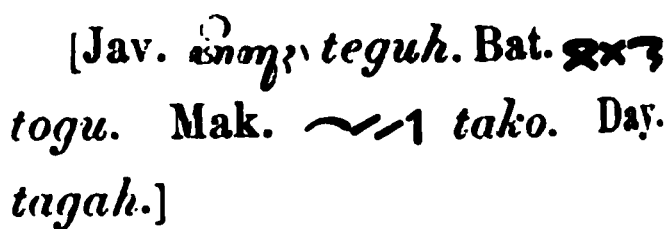 [Jav. ꦠꦼꦒꦸꦃ teguh. Bat. ᯖᯬᯎᯮ
togu. Mak. ᨈᨀᨚ tako. Day.
tagah.]